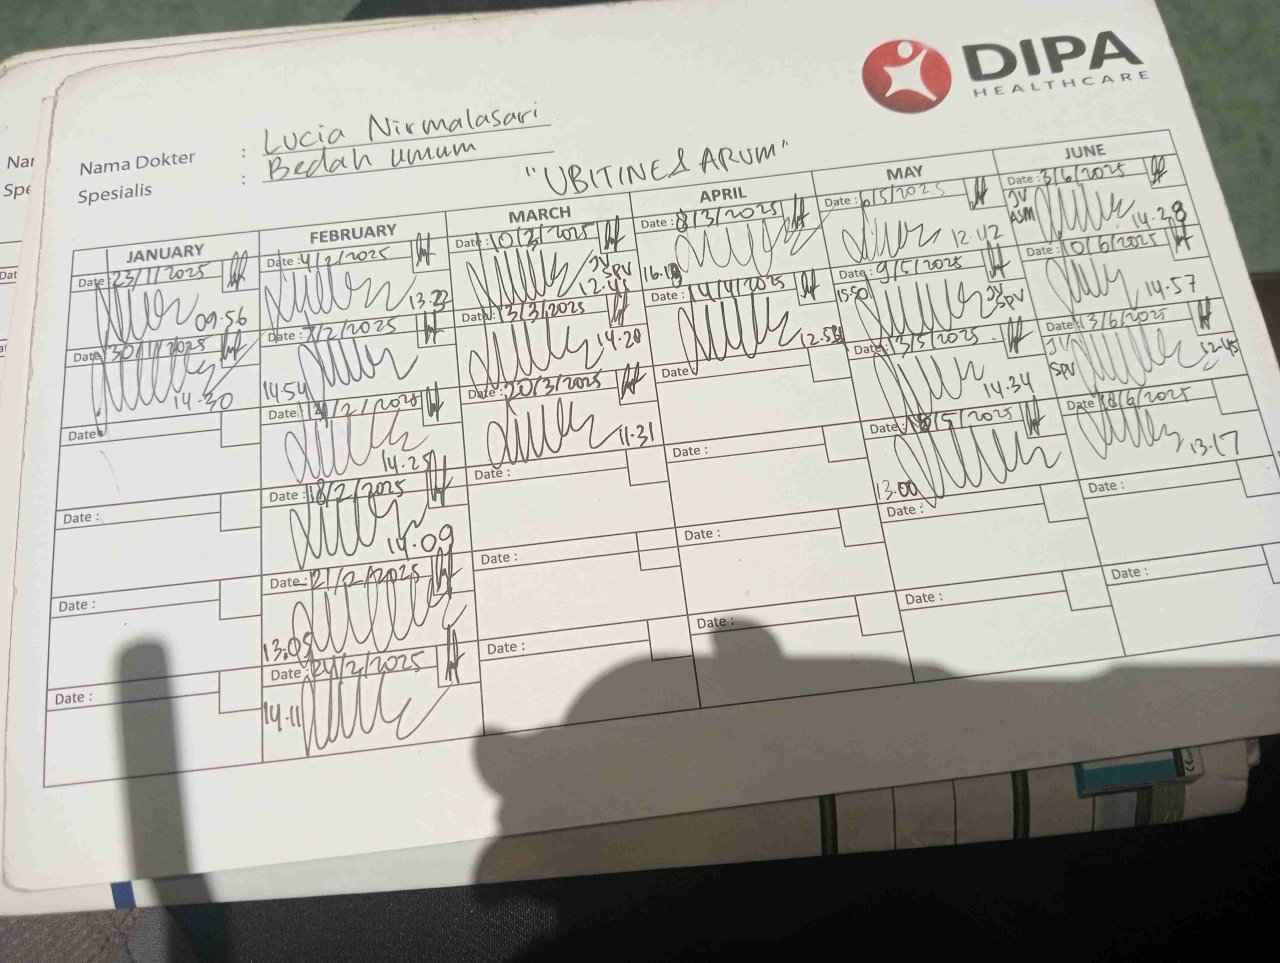 DIPA
HEALTHCARE
Nama Dokter : Lucia Nirmalasari
Spesialis : Bedah umum
"UBITINE & ARUM"
JANUARY
Date : 23/1/2025
09.56
Date : 30/1/2025
14.30
Date :
Date :
Date :
Date :
FEBRUARY
Date : 4/2/2025
Date : 7/2/2025
14.54
Date :
14.25
Date : 18/2/2025
14.09
Date : 21/2/2025
13.05
Date : 24/2/2025
14.11
MARCH
Date : 10/3/2025
JV
SPV
Date : 13/3/2025
14.20
Date : 20/3/2025
11.31
Date :
Date :
Date :
APRIL
Date : 8/3/2025
Date : 14/4/2025
Date :
Date :
Date :
Date :
MAY
Date : 6/5/2025
12.42
Date : 9/5/2025
15.50
JV
SPV
Date : 13/5/2025
14.34
Date : 18/5/2025
13.00
Date :
Date :
JUNE
Date : 3/6/2025
JV
ASM
14.28
Date : 10/6/2025
14.57
Date : 13/6/2025
JV
SPV
12.45
Date : 18/6/2025
13.17
Date :
Date :